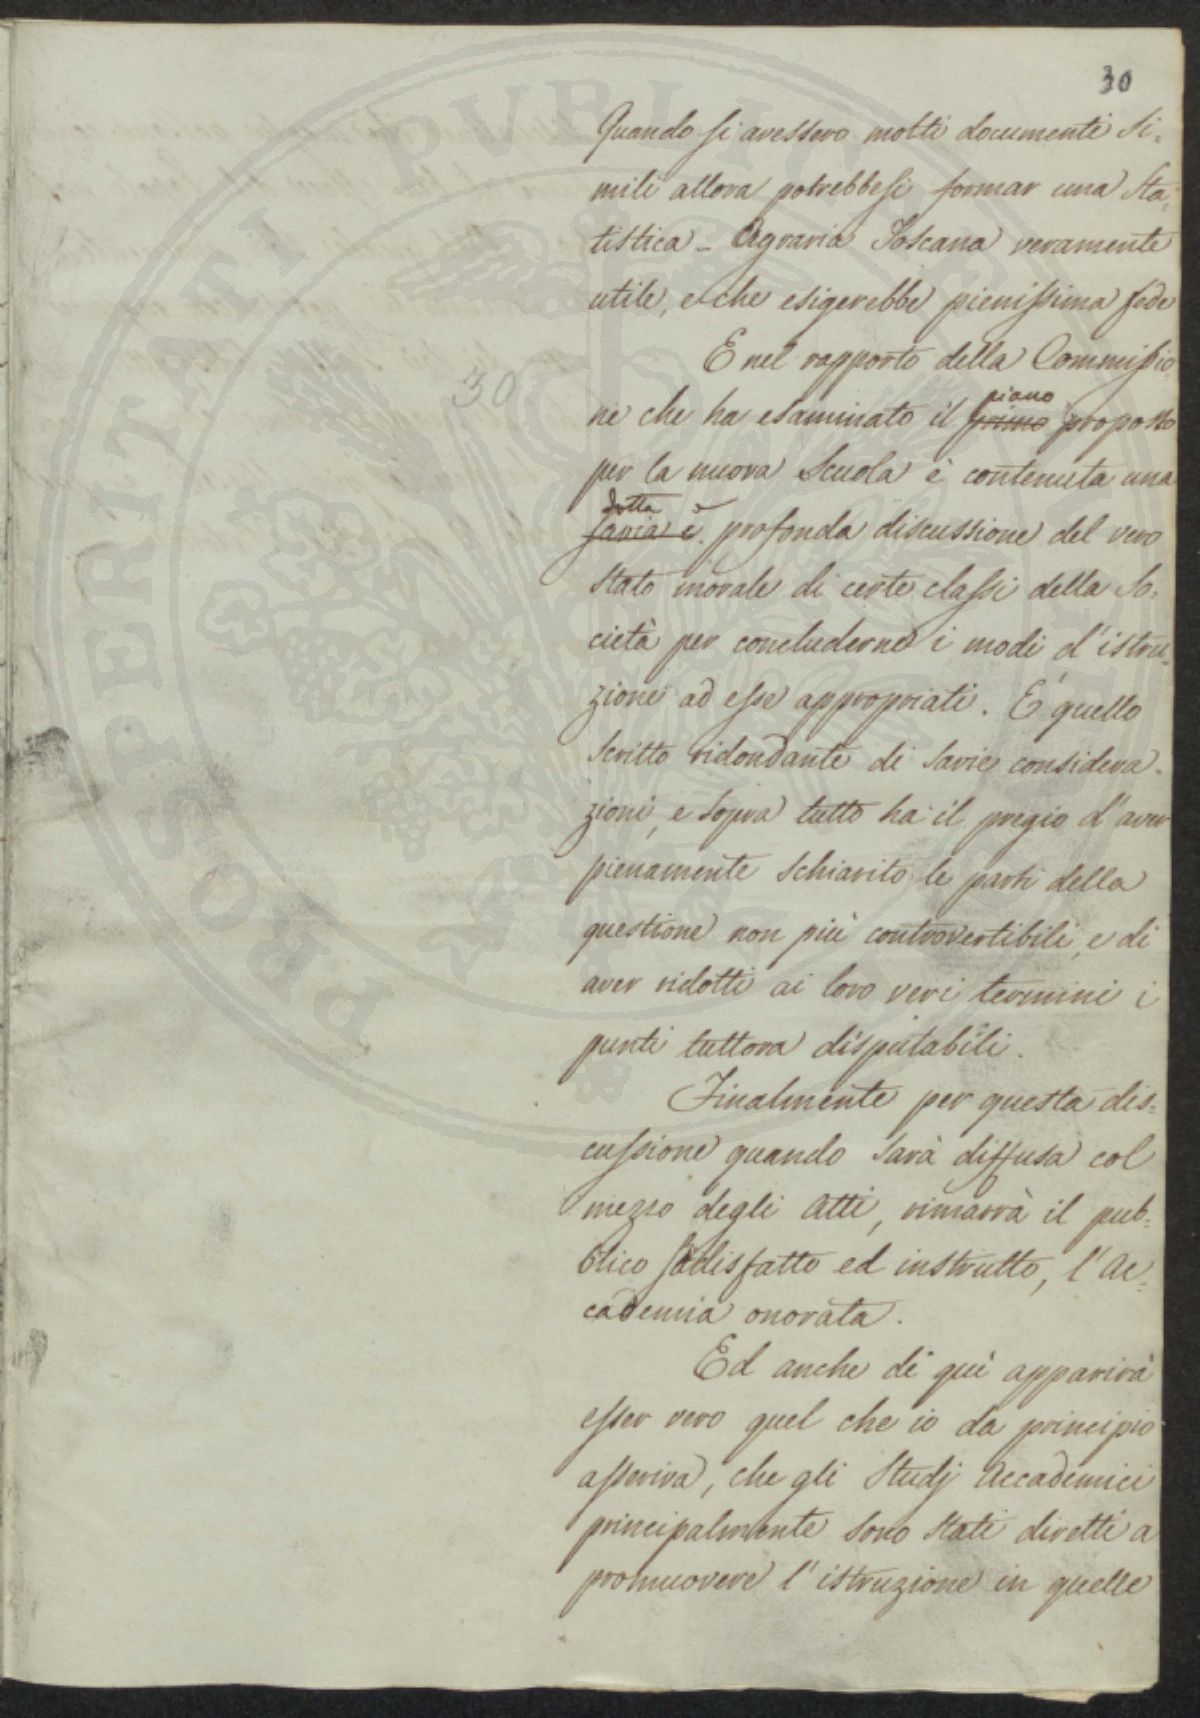 30
Quando si avessero molti documenti si=
mili allora potrebbesi formar una Sta=
tistica - Agraria Toscana veramente
utile, e che esigerebbe pienissima fede
E nel rapporto della Commissio=
piano
ne che ha esaminato il primo proposto
30
per la nuova Scuola è contenuta una
dotta e
savia e profonda discussione del vero
stato morale di certe classi della So=
cietà per concluderne i modi d'istru=
zione ad esse appropriati. E' quello
scritto ridondante di savie considera=
zioni, e sopra tutto ha il pregio d'aver
pienamente schiarito le parti della
questione non più controvertibili, e di
aver ridotti ai loro veri termini i
punti tuttora disputabili.
Finalmente per questa dis=
cussione quando sarà diffusa col
mezzo degli Atti, rimarrà il pub=
blico sodisfatto ed instrutto, l'Ac=
cademia onorata.
Ed anche di quì apparirà
esser vero quel che io da principio
asseriva, che gli Studj Accademici
principalmente sono stati diretti a
promuovere l'istruzione in quelle
PROSPERITATI PUBLIC